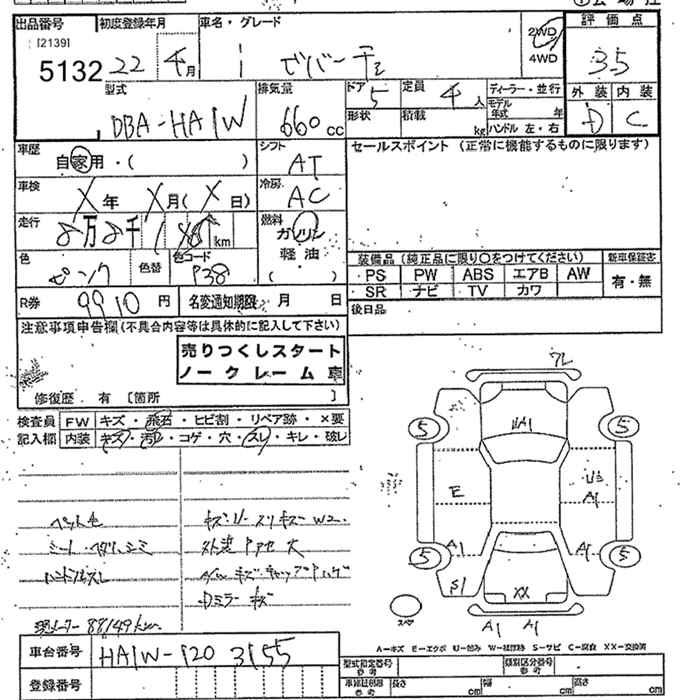 出品番号 初度登録年月 車名・グレード 評価点
[2139]
5132 22年 4月 i ビバーチェ 2WD 4WD 3.5
型式 DBA-HA1W 排気量 660cc ドア 5 定員 4人 ディーラー・並行
形状 積載 kg モデル年式 年 ハンドル 左・右
外装 内装
D C
車歴 自家用・( ) シフト AT セールスポイント (正常に機能するものに限ります)
車検 X年 X月(X日) 冷房 AC
走行 8万8千1 km 燃料 ガソリン 軽油 ( )
色 ピンク 色替 色コード P38
装備品 (純正品に限り○をつけてください) 新車保証書
PS PW ABS エアB AW 有・無
SR ナビ TV カワ
R券 9910円 名変通知期限 月 日 後日品
注意事項申告欄(不具合内容等は具体的に記入して下さい)
売りつくしスタート
ノークレーム車
修復歴 有 [箇所 ]
検査員記入欄 FW キズ・飛石・ヒビ割・リペア跡・×要
内装 キズ・汚れ・コゲ・穴・スレ・キレ・破レ
ペット毛
シート・
外装 大
Dミラーキズ
現メーター 88149km
A1
5 5
E A1
A1 A1
5 5
S1 XX
スペア
A1 A1
A-キズ E-エクボ U-凹み W-補修跡 S-サビ C-腐食 XX-交換済
車台番号 HA1W-120 3155 型式指定番号 参考 類別区分番号 参考
登録番号 車検証記載 参考 長さ cm 幅 cm 高さ cm